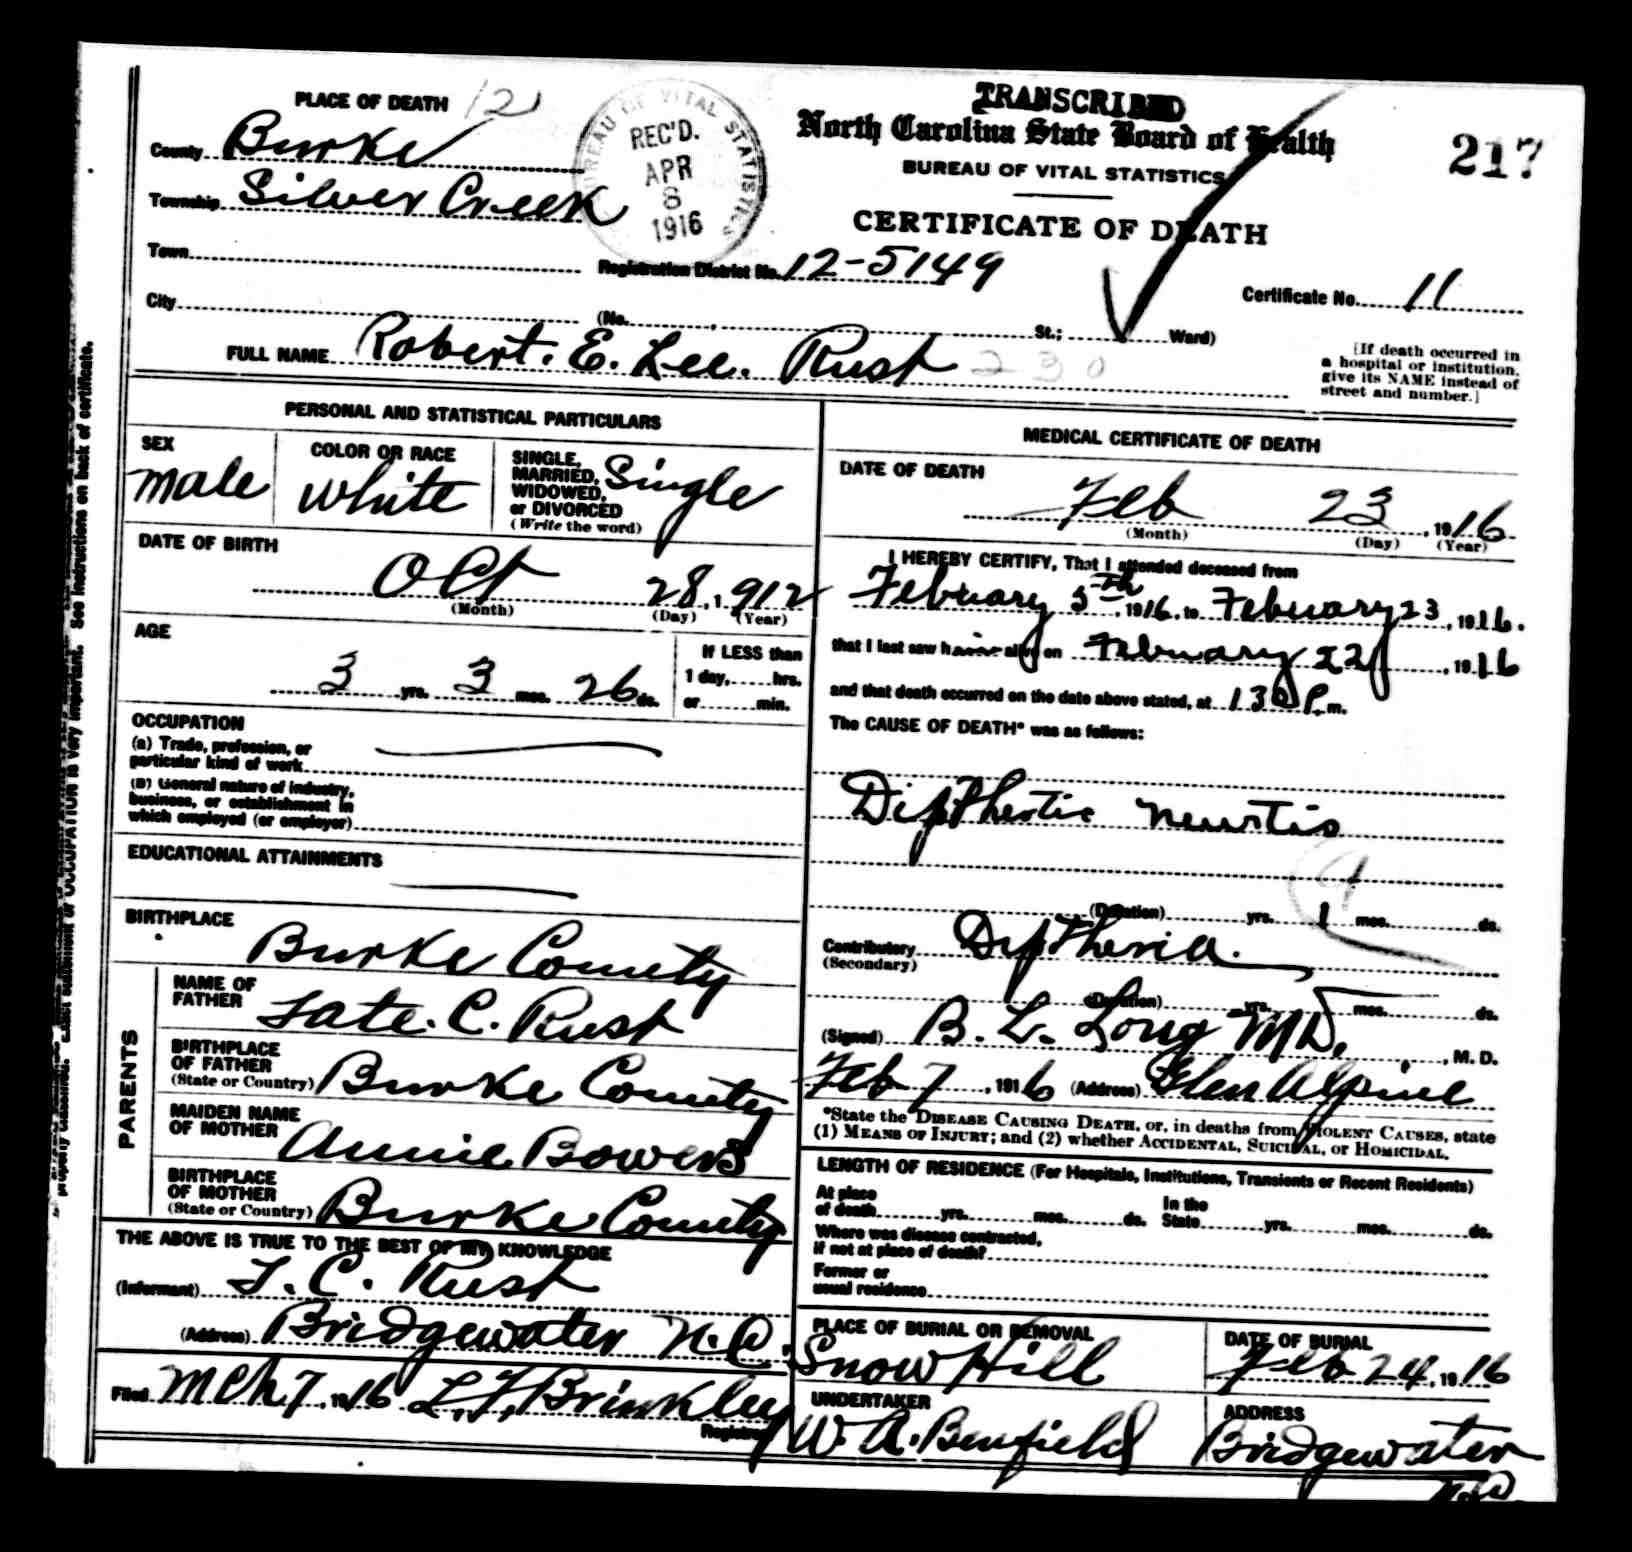 TRANSCRIBED
PLACE OF DEATH 12
North Carolina State Board of Health
217
BUREAU OF VITAL STATISTICS
CERTIFICATE OF DEATH
BUREAU OF VITAL STATISTICS
REC'D.
APR
8
1916
County Burke
Township Silver Creek
Town Registration District No. 12-5149 Certificate No. 11
City (No. , St.; Ward)
FULL NAME Robert. E. Lee. Rust 230
[If death occurred in
a hospital or institution,
give its NAME instead of
street and number.]
PERSONAL AND STATISTICAL PARTICULARS
SEX
male
COLOR OR RACE
white
SINGLE,
MARRIED,
WIDOWED,
or DIVORCED
(Write the word)
Single
DATE OF BIRTH
Oct 28, 1912
(Month) (Day) (Year)
AGE
3 yrs. 3 mos. 26 ds.
If LESS than
1 day, hrs.
or min.
OCCUPATION
(a) Trade, profession, or
particular kind of work
(B) General nature of industry,
business, or establishment in
which employed (or employer)
EDUCATIONAL ATTAINMENTS
BIRTHPLACE
Burke County
PARENTS
NAME OF
FATHER
Tate. C. Rust
BIRTHPLACE
OF FATHER
(State or Country) Burke County
MAIDEN NAME
OF MOTHER
Annie Bowers
BIRTHPLACE
OF MOTHER
(State or Country) Burke County
THE ABOVE IS TRUE TO THE BEST OF MY KNOWLEDGE
(Informant) T. C. Rust
(Address) Bridgewater N.C.
Filed Mch 7, 1916 L. F. Brinkley
Registrar
MEDICAL CERTIFICATE OF DEATH
DATE OF DEATH
Feb 23, 1916
(Month) (Day) (Year)
I HEREBY CERTIFY, That I attended deceased from
Febuary 5th, 1916, to Febuary 23, 1916.
that I last saw him alive on Febuary 22, 1916
and that death occurred on the date above stated, at 130 P. m.
The CAUSE OF DEATH* was as follows:
Dipthertic neurtis
9
(Duration) yrs. 1 mos. ds.
Contributory Diptheria.
(Secondary)
(Duration) yrs. mos. ds.
(Signed) B. L. Long MD, M. D.
Feb 7, 1916 (Address) Glen Alpine
*State the DISEASE CAUSING DEATH, or, in deaths from VIOLENT CAUSES, state
(1) MEANS OF INJURY; and (2) whether ACCIDENTAL, SUICIDAL, or HOMICIDAL.
LENGTH OF RESIDENCE (For Hospitals, Institutions, Transients or Recent Residents)
At place
of death yrs. mos. ds.
In the
State yrs. mos. ds.
Where was disease contracted,
if not at place of death?
Former or
usual residence
PLACE OF BURIAL OR REMOVAL
Snow Hill
DATE OF BURIAL
Feb 24, 1916
UNDERTAKER
W. A. Benfield
ADDRESS
Bridgewater
N.C.
properly classified. Exact statement of OCCUPATION is very important. See instructions on back of certificate.